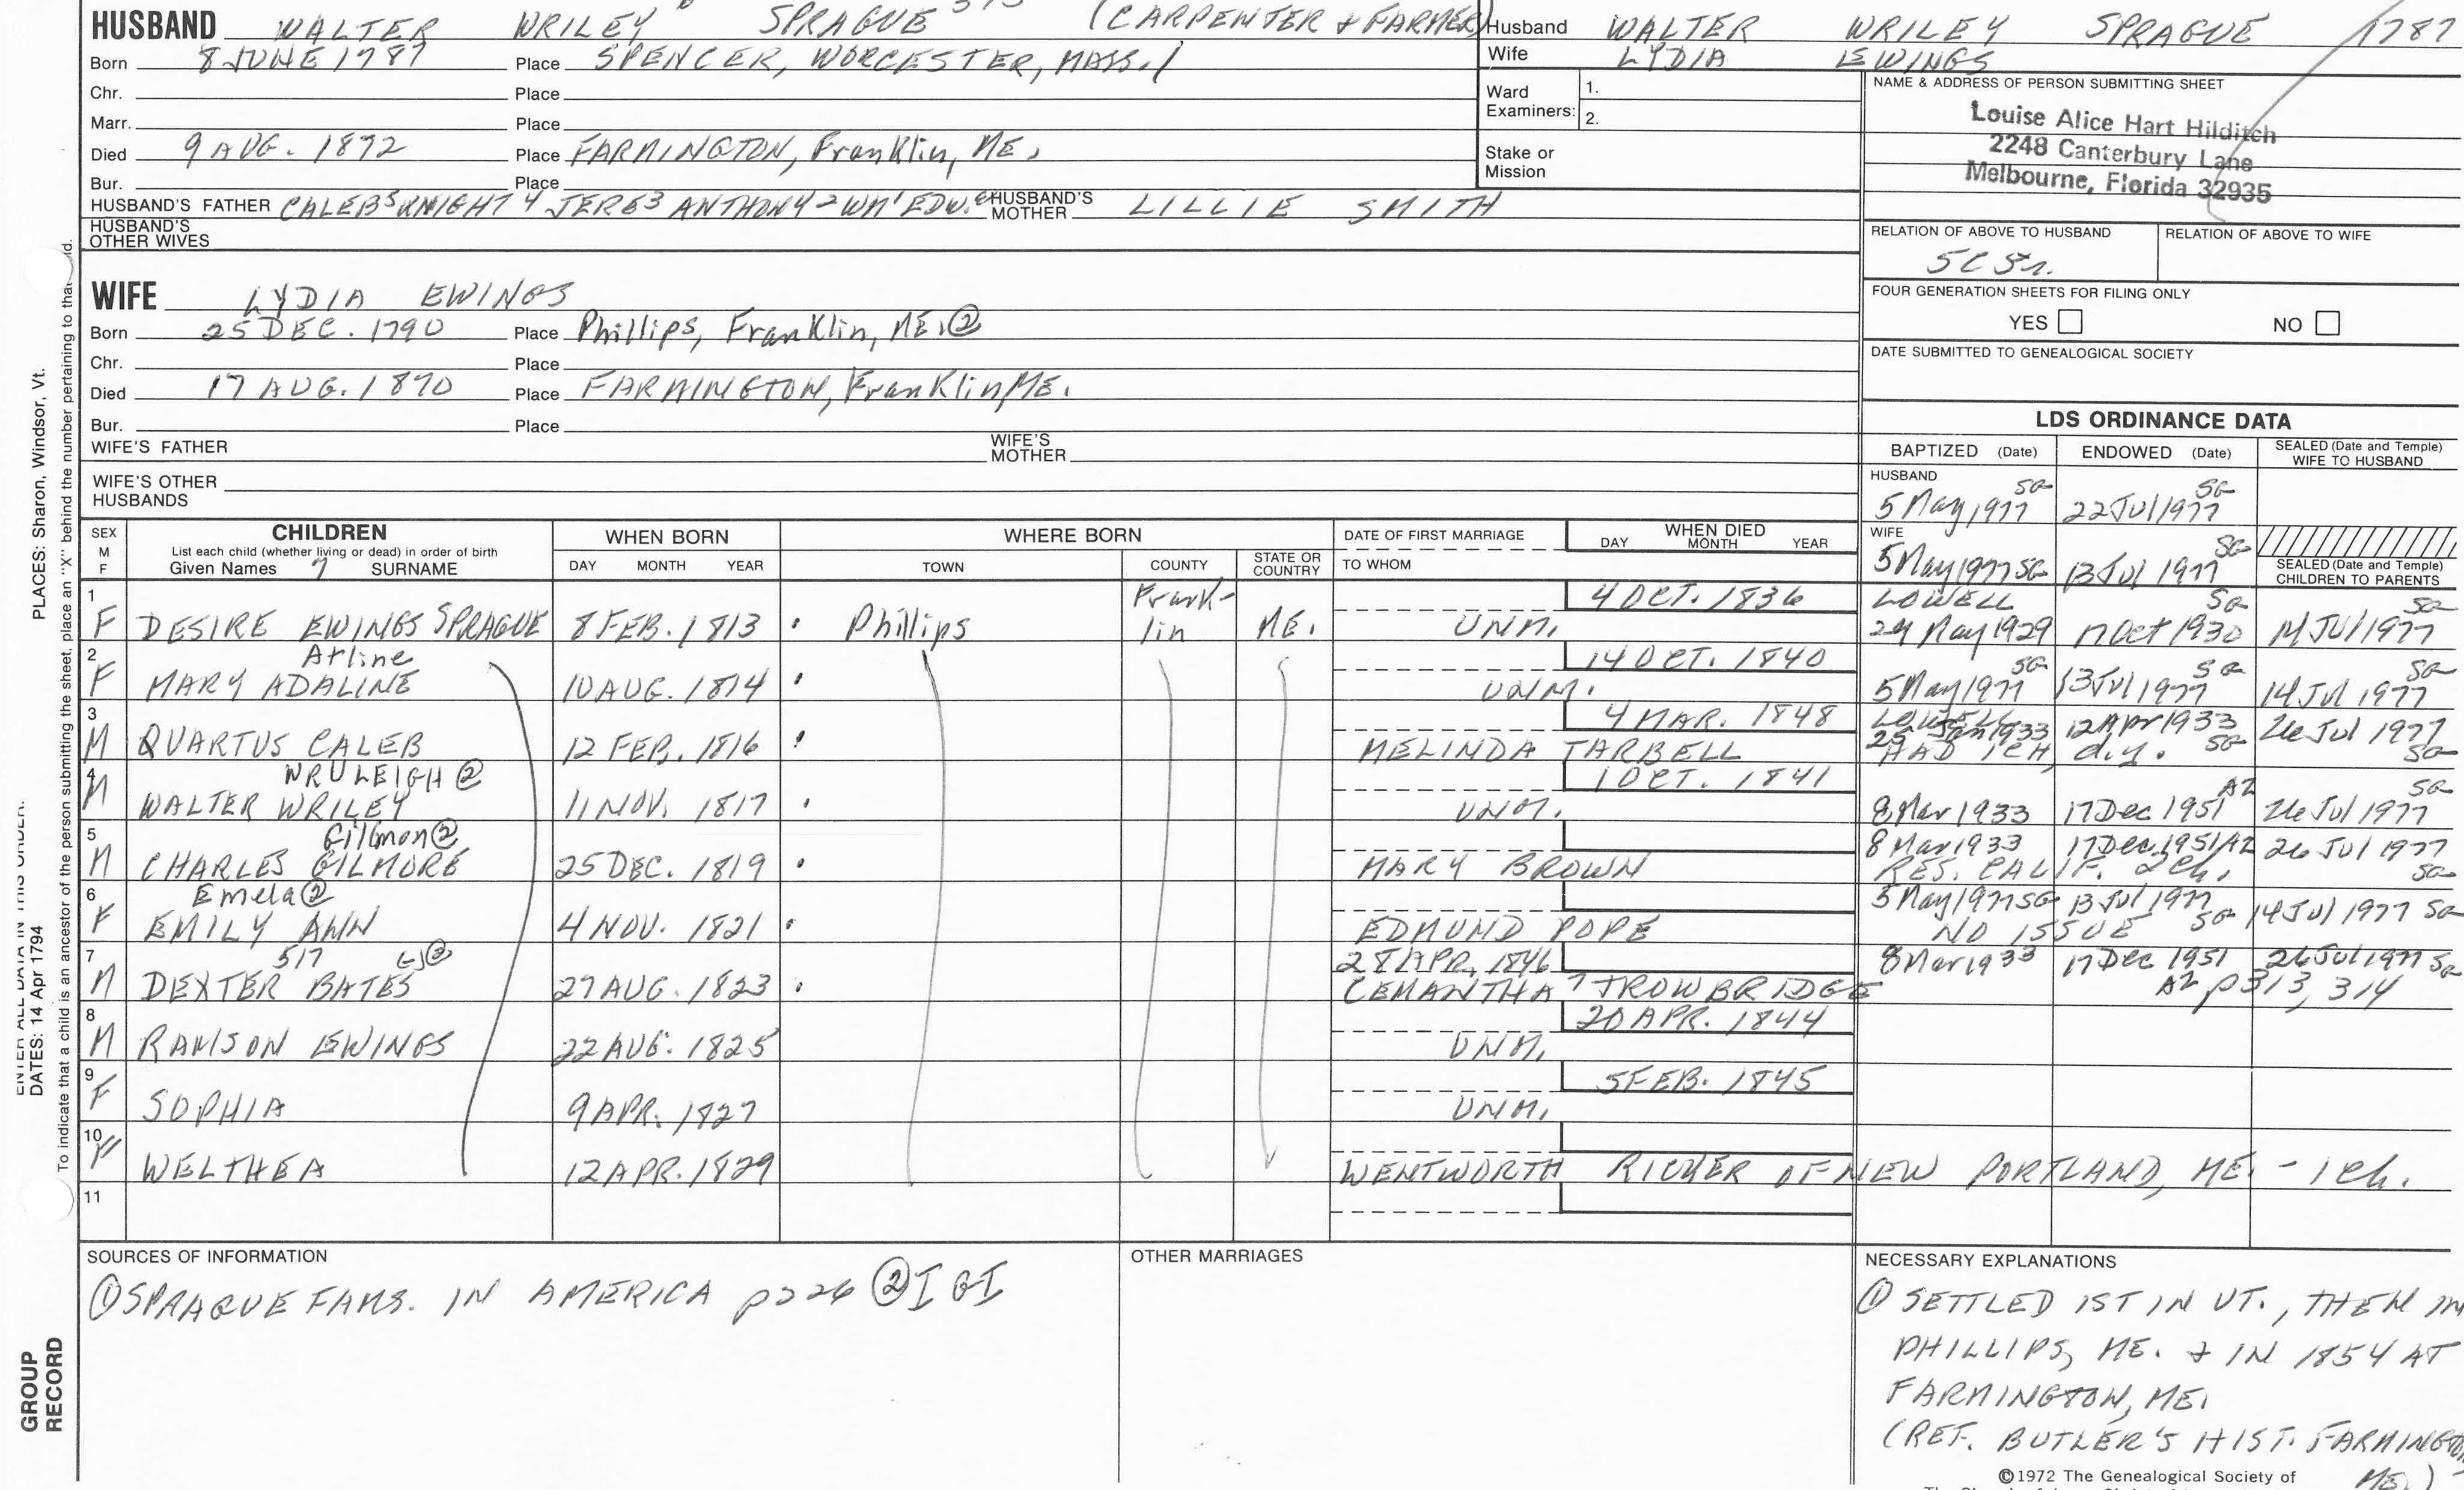 HUSBAND WALTER WRILEY SPRAGUE (CARPENTER & FARMER)
Born 8 JUNE 1787 Place SPENCER, WORCESTER, MASS. /
Chr. Place
Marr. Place
Died 9 AUG. 1872 Place FARMINGTON, Franklin, ME.
Bur. Place
HUSBAND'S FATHER CALEB5 KNIGHT4 JERE3 ANTHONY2 WM1 EDW. HUSBAND'S MOTHER LILLIE SMITH
HUSBAND'S OTHER WIVES
Husband WALTER WRILEY SPRAGUE 1787
Wife LYDIA EWINGS
Ward Examiners: 1.
2.
Stake or Mission
NAME & ADDRESS OF PERSON SUBMITTING SHEET
Louise Alice Hart Hilditch
2248 Canterbury Lane
Melbourne, Florida 32935
RELATION OF ABOVE TO HUSBAND RELATION OF ABOVE TO WIFE
5C 5r.
FOUR GENERATION SHEETS FOR FILING ONLY
YES NO
DATE SUBMITTED TO GENEALOGICAL SOCIETY
WIFE LYDIA EWINGS
Born 25 DEC. 1790 Place Phillips, Franklin, ME. ②
Chr. Place
Died 17 AUG. 1870 Place FARMINGTON, Franklin, ME.
Bur. Place
WIFE'S FATHER WIFE'S MOTHER
WIFE'S OTHER HUSBANDS
LDS ORDINANCE DATA
BAPTIZED (Date) ENDOWED (Date) SEALED (Date and Temple) WIFE TO HUSBAND
HUSBAND
5 May 1977 SG 22 Jul 1977 SG
WIFE
5 May 1977 SG 13 Jul 1977 SG
SEALED (Date and Temple) CHILDREN TO PARENTS
SEX M F CHILDREN List each child (whether living or dead) in order of birth Given Names SURNAME
WHEN BORN DAY MONTH YEAR
WHERE BORN TOWN COUNTY STATE OR COUNTRY
DATE OF FIRST MARRIAGE TO WHOM
WHEN DIED DAY MONTH YEAR
1 F DESIRE EWINGS SPRAGUE 8 FEB. 1813 Phillips Franklin ME. UNM. 4 OCT. 1836 LOWELL 29 May 1929 17 Oct 1930 SG 14 Jul 1977 SG
2 F Arline
MARY ADALINE 10 AUG. 1814 UNM. 14 OCT. 1840 5 May 1977 SG 13 Jul 1977 SG 14 Jul 1977 SG
3 M QUARTUS CALEB 12 FEB. 1816 MELINDA TARBELL 4 MAR. 1848 LOWELL 25 Jan 1933 12 Apr 1933 SG 26 Jul 1977 SG
HAD 1 CH, d.y.
4 M WRULEIGH ②
WALTER WRILEY 11 NOV. 1817 UNM. 1 OCT. 1841 8 Mar 1933 17 Dec 1951 AZ 26 Jul 1977 SG
5 M Gilmon ②
CHARLES GILMORE 25 DEC. 1819 MARY BROWN 8 Mar 1933 17 Dec. 1951 AZ 26 Jul 1977 SG
RES. CALIF. 2 ch.
6 F Emela ②
EMILY ANN 4 NOV. 1821 EDMUND POPE 5 May 1977 SG 13 Jul 1977 SG 14 Jul 1977 SG
NO ISSUE
7 M 517
DEXTER BATES 27 AUG. 1823 28 APR. 1846 CEMANTHA TROWBRIDGE 8 Mar 1933 17 Dec 1951 AZ 26 Jul 1977 SG
p 313, 314
8 M RAMSON EWINGS 22 AUG. 1825 UNM. 20 APR. 1844
9 F SOPHIA 9 APR. 1827 UNM. 5 FEB. 1845
10 F WELTHEA 12 APR. 1829 WENTWORTH RICKER OF NEW PORTLAND, ME. - 1 ch.
11
SOURCES OF INFORMATION
① SPRAGUE FAMS. IN AMERICA p 226 ② IGI
OTHER MARRIAGES
NECESSARY EXPLANATIONS
① SETTLED 1ST IN VT., THEN IN
PHILLIPS, ME. & IN 1854 AT
FARMINGTON, ME.
(REF. BUTLER'S HIST. FARMINGTON, ME.)
©1972 The Genealogical Society of
PLACES: Sharon, Windsor, Vt.
DATES: 14 Apr 1794
To indicate that a child is an ancestor of the person submitting the sheet, place an "X" behind the number pertaining to that
GROUP
RECORD